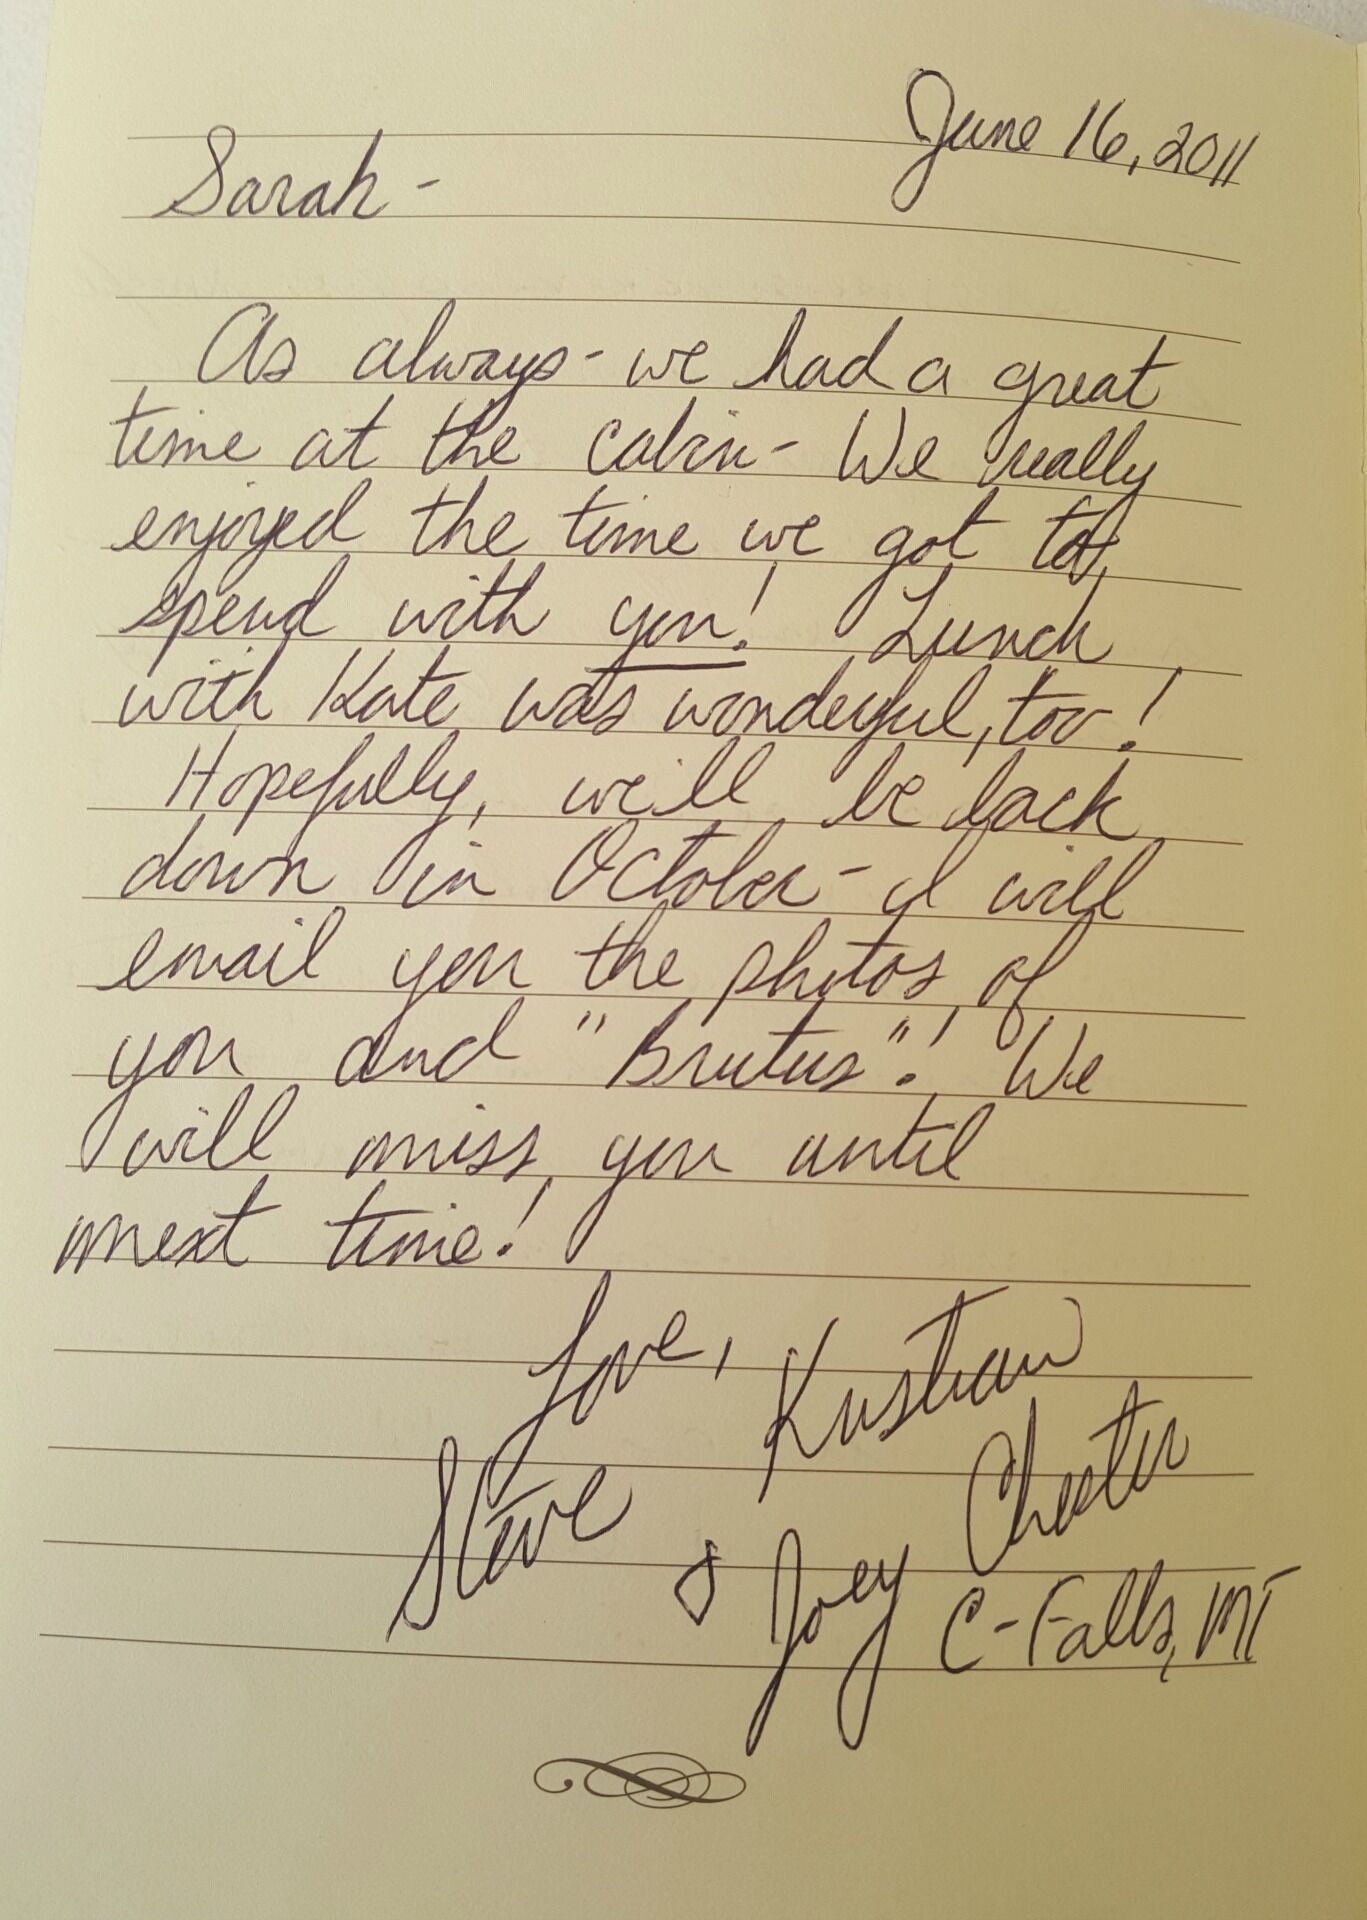 June 16, 2011
Sarah -
As always - we had a great
time at the cabin - We really
enjoyed the time we got to
spend with you! Lunch
with Kate was wonderful, too!
Hopefully, we'll be back
down in October - I will
email you the photos of
you and "Brutus"! We
will miss you until
next time!
Love,
Steve & Joey Chester
C-Falls, MT